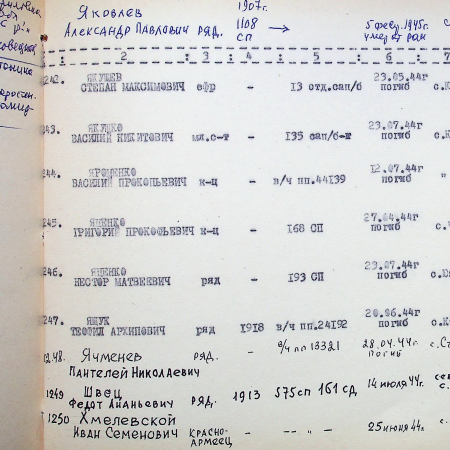 Яковлев 1907г.
Александр Павлович ряд. 1108 сп → 5 февр. 1945г. умер от ран
: 2 : 3 : 4 : 5 : 6 : 7
242. ЯКУШЕВ СТЕПАН МАКСИМОВИЧ ефр - 13 отд.сап/б 23.05.44г погиб
243. ЯКУШКО ВАСИЛИЙ НИКИТОВИЧ мл.с-т - 135 сап/б-н 23.07.44г погиб
244. ЯРОМЕНКО ВАСИЛИЙ ПРОКОПЬЕВИЧ к-ц - в/ч пп.44139 12.07.44г погиб "
245. ЯЦЕНКО ГРИГОРИЙ ПРОКОФЬЕВИЧ к-ц - 168 СП 27.04.44г погиб
246. ЯЦЕНКО НЕСТОР МАТВЕЕВИЧ ряд - 193 СП 23.07.44г погиб
247. ЯЩУК ТЕОФИЛ АРХИПОВИЧ ряд 1918 в/ч пп.24192 20.06.44г погиб
1248. Ячменев ряд. - в/ч пп 13321 28.04.44г погиб
Пантелей Николаевич
1249 Швец
Федот Ананьевич ряд. 1913 575сп 161 сд 14 июля 44г.
1250 Хмелевской
Иван Семенович КРАСНО-АРМЕЕЦ - -- " - 25 июня 44г.